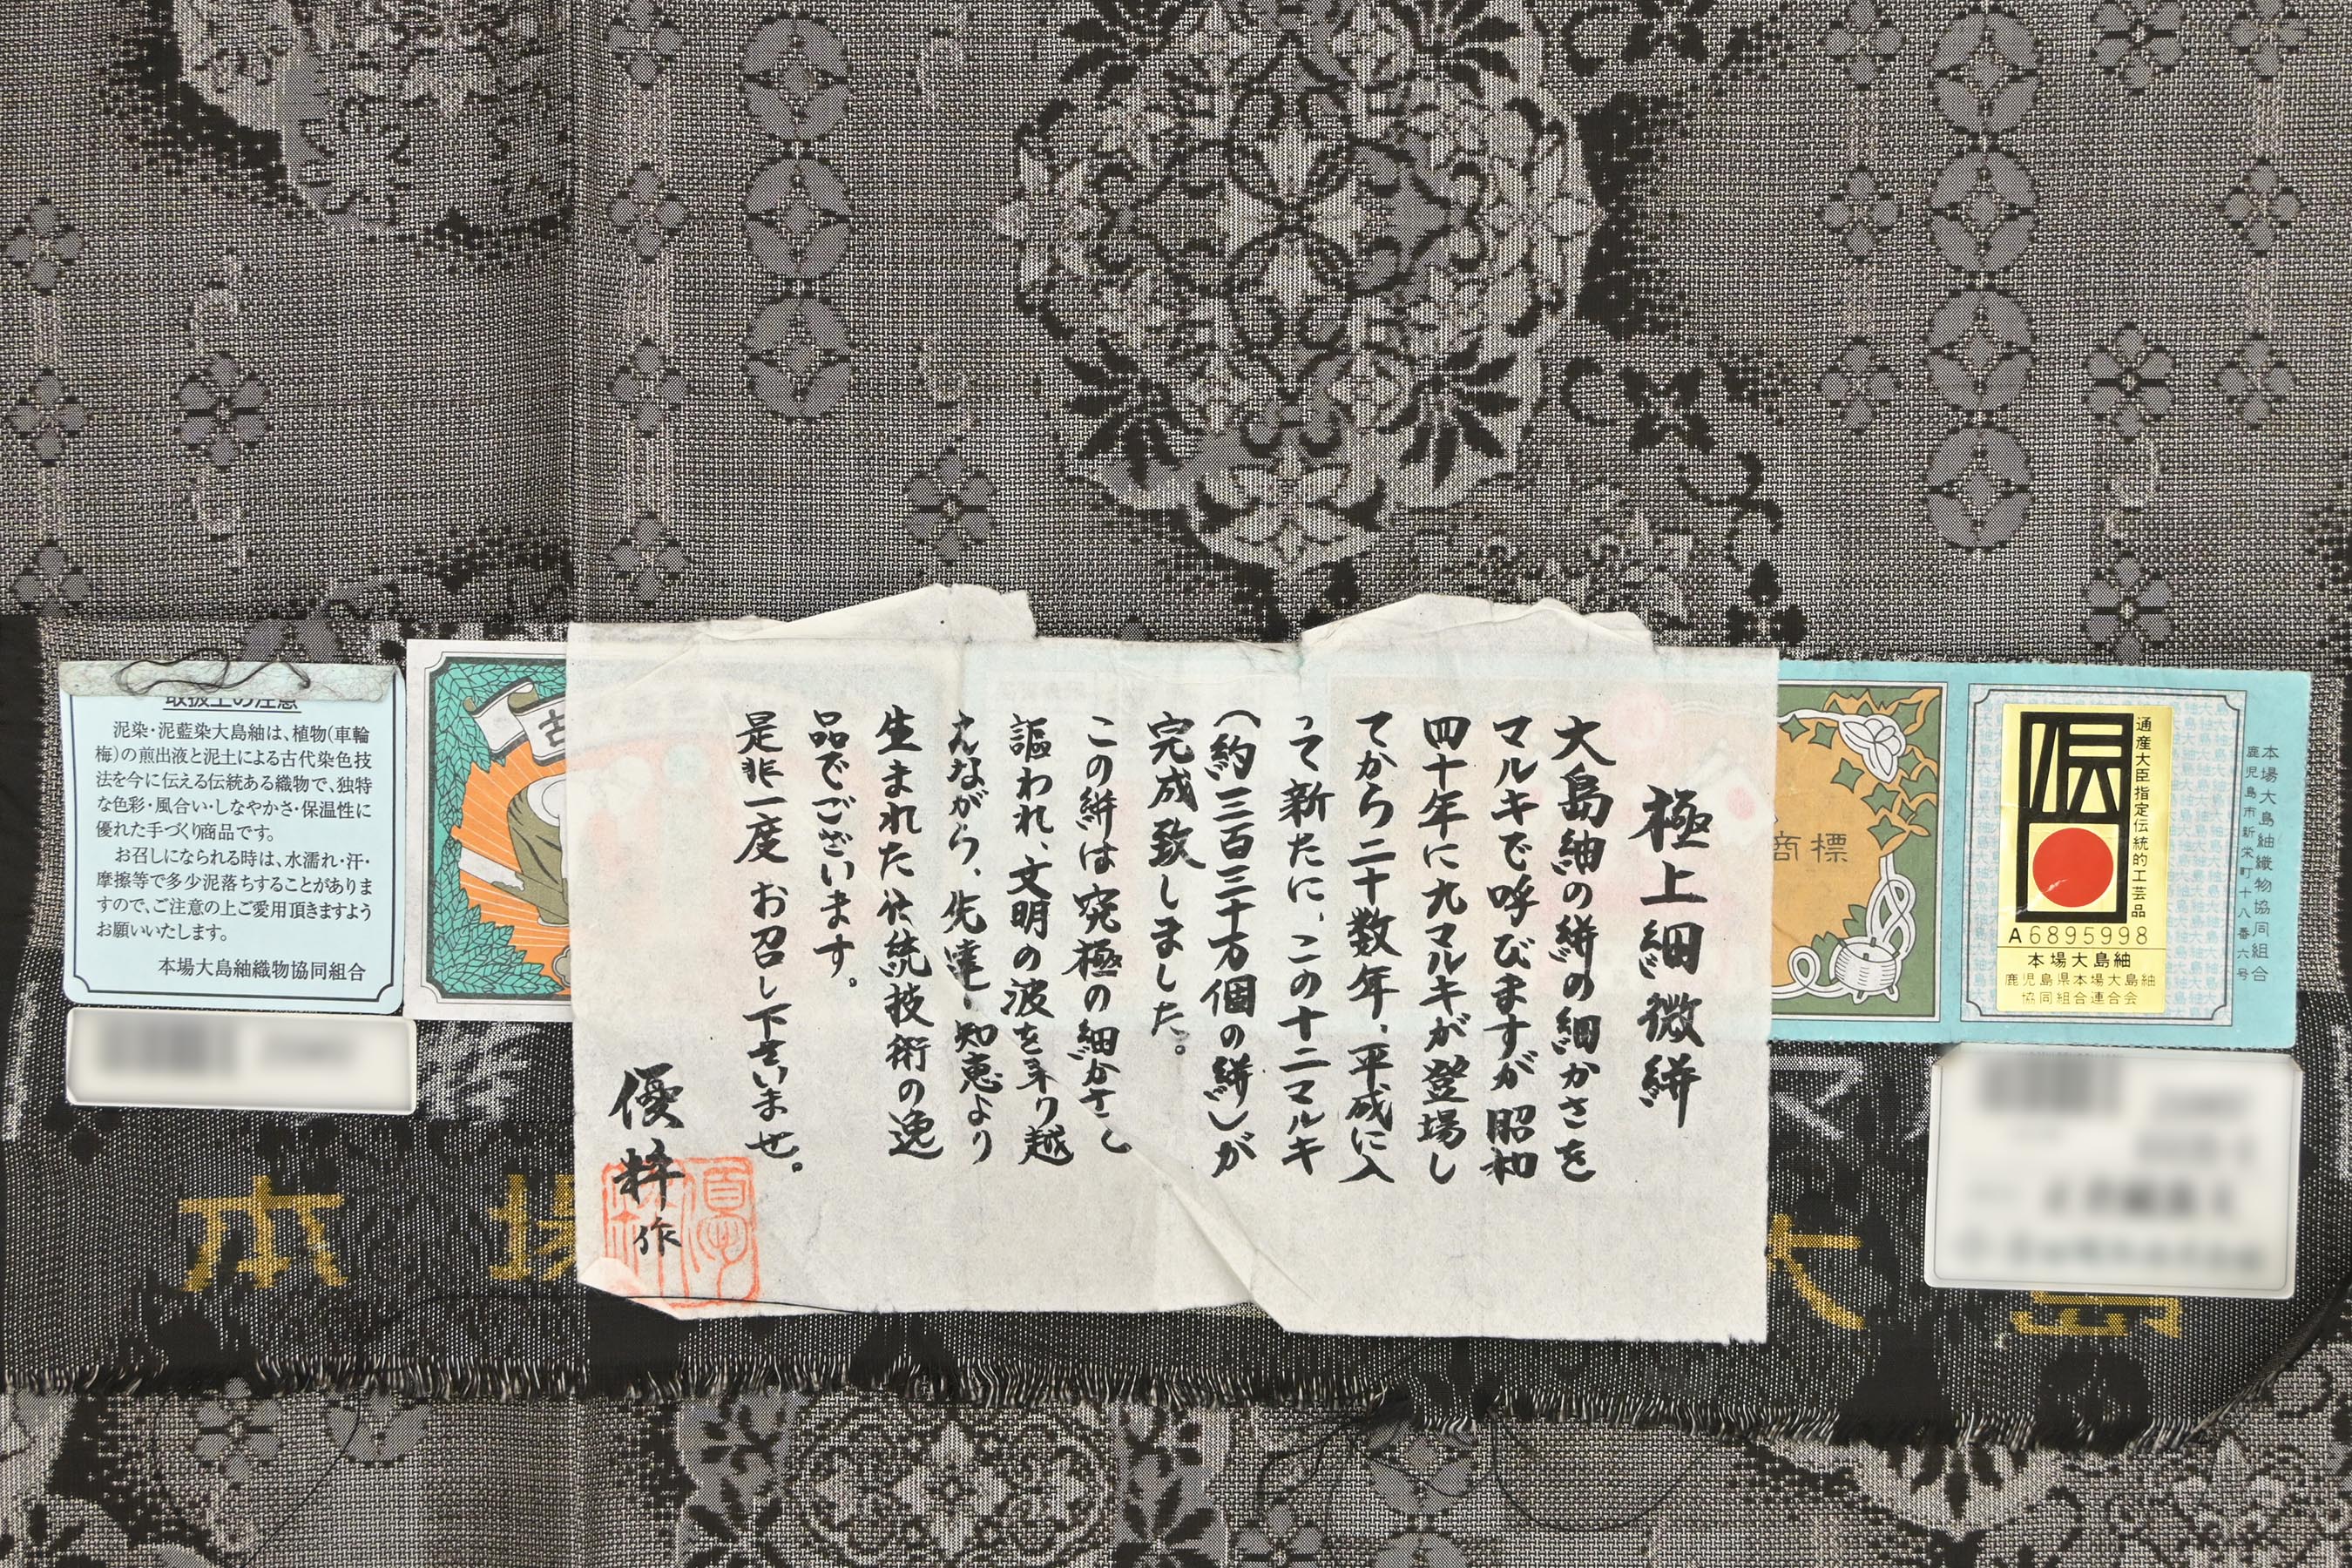 取扱上の注意
泥染・泥藍染大島紬は、植物(車輪
梅)の煎出液と泥土による古代染色技
法を今に伝える伝統ある織物で、独特
な色彩・風合い・しなやかさ・保温性に
優れた手づくり商品です。
お召しになられる時は、水濡れ・汗・
摩擦等で多少泥落ちすることがありま
すので、ご注意の上ご愛用頂きますよう
お願いいたします。
本場大島紬織物協同組合
古
極上細微絣
大島紬の絣の細かさを
マルキで呼びますが昭和
四十年に九マルキが登場し
てから二十数年、平成に入
って新たに、この十二マルキ
(約三百三十万個の絣)が
完成致しました。
この絣は究極の細かさと
謳われ、文明の波を乗り越
えながら、先達の知恵より
生まれた伝統技術の逸
品でございます。
是非一度お召し下さいませ。
優粋作
商標
伝
通産大臣指定伝統的工芸品
A6895998
本場大島紬
鹿児島県本場大島紬
協同組合連合会
本場大島紬織物協同組合
鹿児島市新栄町十八番六号
マ
本場
大島